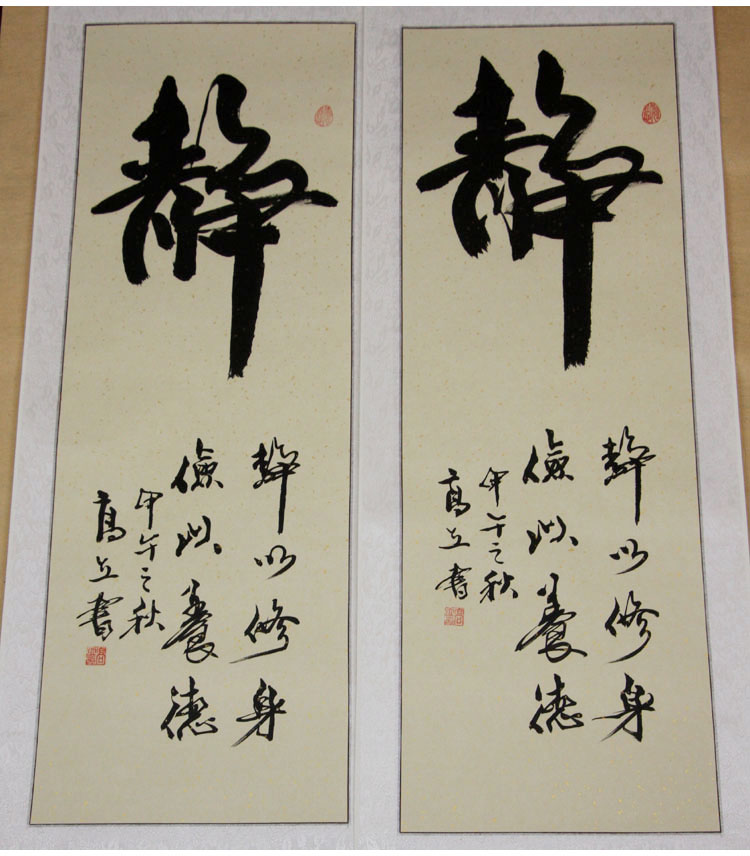 静
静以修身
儉以養德
甲午之秋
高立書
静
静以修身
儉以養德
甲午之秋
高立書